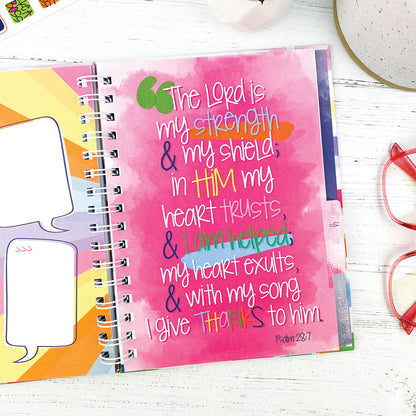 The Lord is
my strength
& my shield;
in HIM my
heart trusts,
& I am helped;
my heart exults,
& with my song
I give THANKS to him.
Psalm 28:7